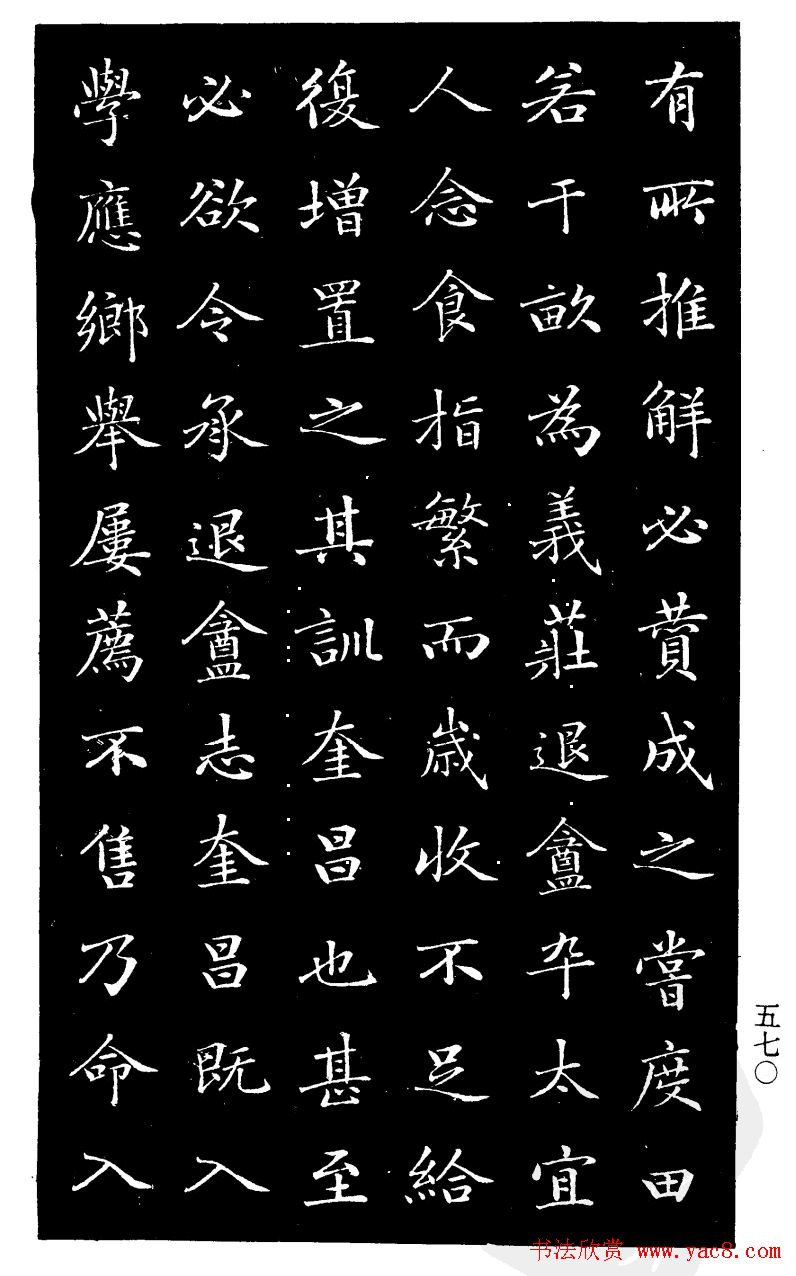 有所推解必賛成之嘗度田
若干畝為義莊退盦卒太宜
人念食指繁而歳收不足給
復增置之其訓奎昌也甚至
必欲令承退盦志奎昌既入
學應鄉舉屢薦不售乃命入
五七〇
书法欣赏 www.yac8.com